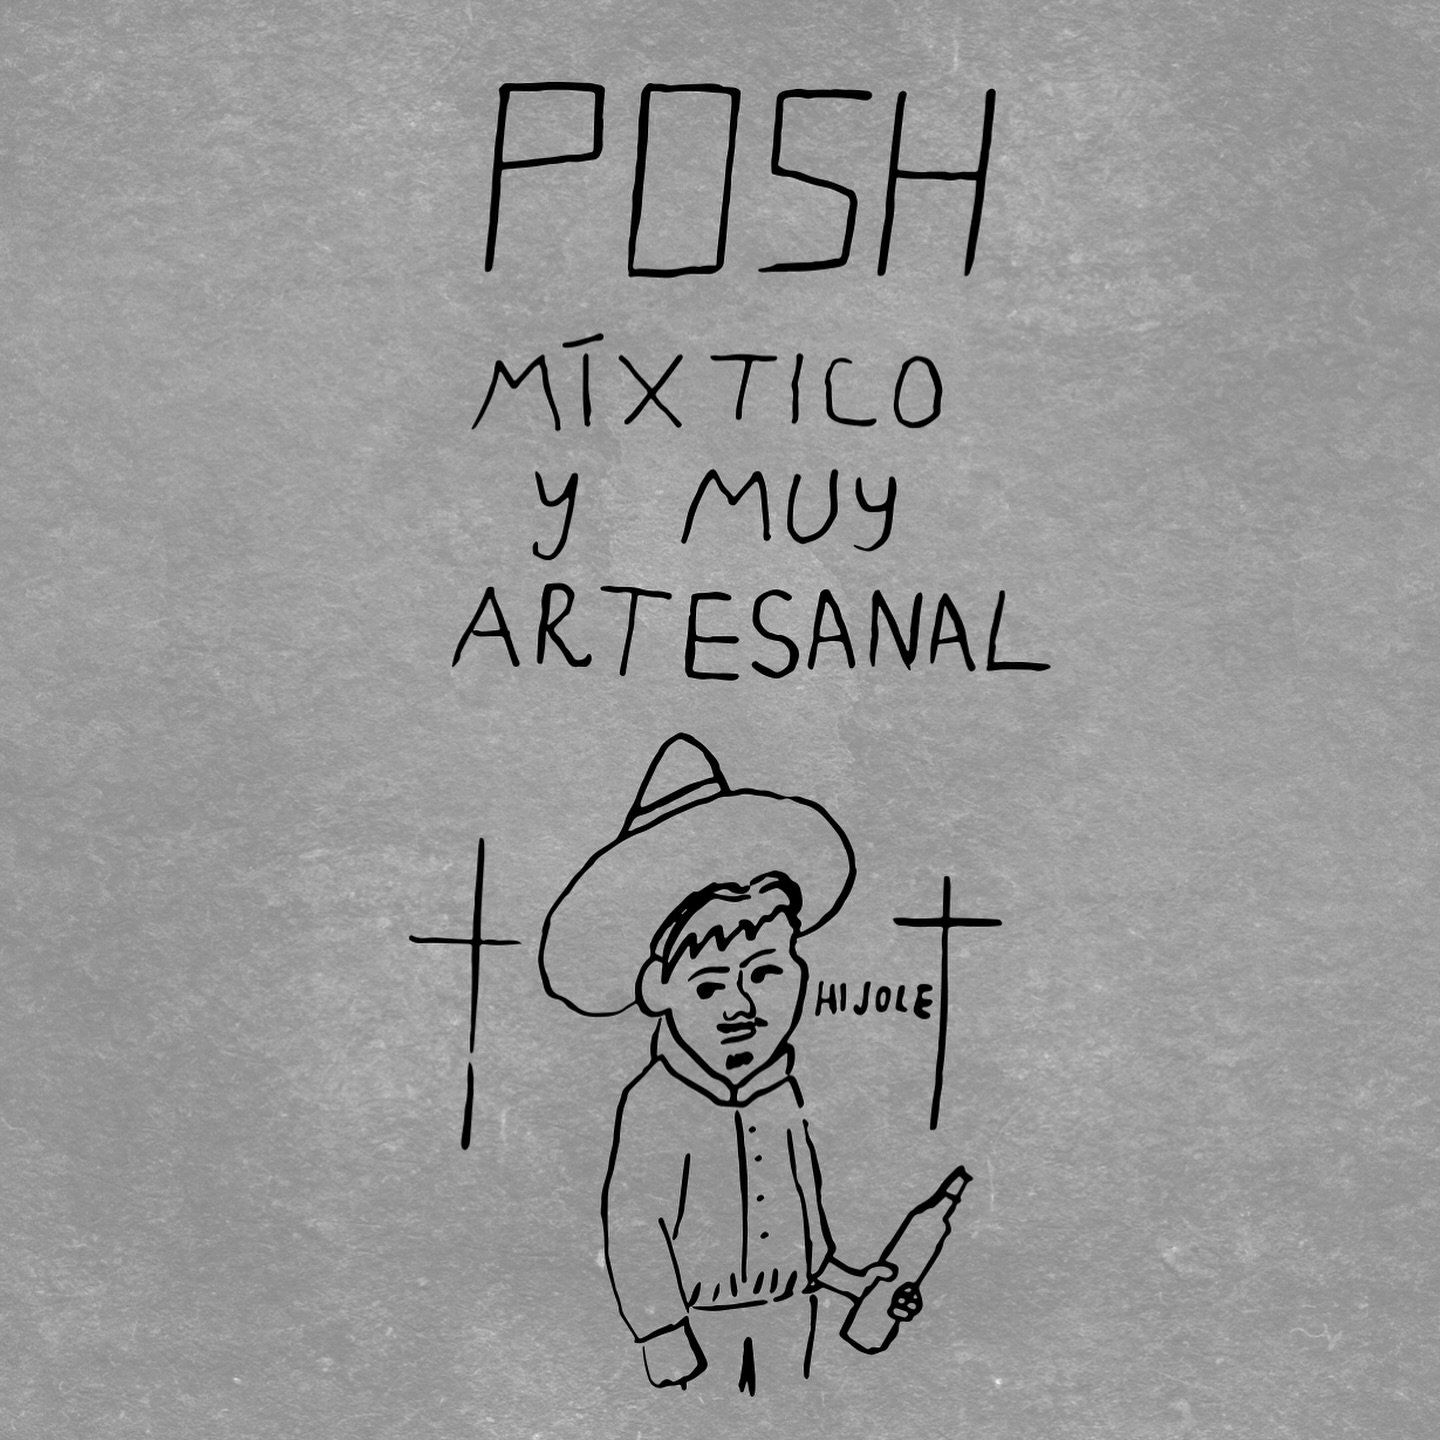 POSH
MÍXTICO
y MUY
ARTESANAL
HIJOLE